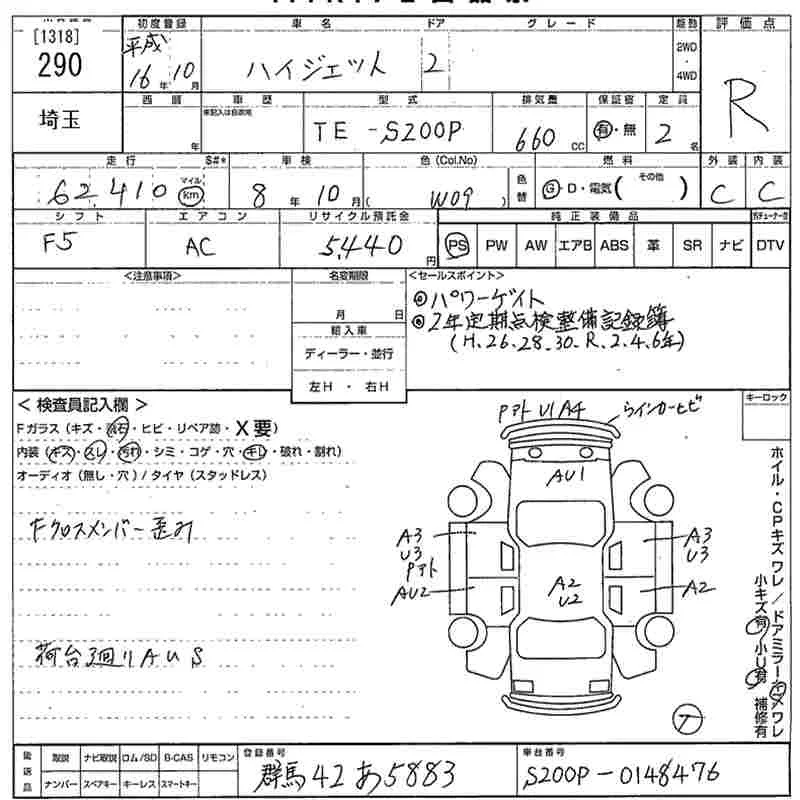 [1318]
290
埼玉
初度登録 車名 ドア グレード 駆動 評価点
平成
16年10月
ハイジェット 2
2WD
・
4WD
R
西暦 車歴 型式 排気量 保証書 定員
年
TE-S200P 660CC 有・無 2名
走行 S#* 車検 色(Col.No) 燃料 外装 内装
62,410 マイル km
8年10月( W09 ) 色替 G・D・電気( その他 ) C C
シフト エアコン リサイクル預託金 純正装備品
F5 AC 5,440円 PS PW AW エアB ABS 革 SR ナビ DTV
<注意事項> 名変期限 <セールスポイント>
月 日
輸入車
ディーラー・並行
左H・右H
◎パワーゲイト
◎2年定期点検整備記録簿
(H.26.28.30.R.2.4.6年)
<検査員記入欄>
Fガラス(キズ・飛石・ヒビ・リペア跡・X要)
内装(キズ・スレ・汚れ・シミ・コゲ・穴・キレ・破れ・割れ)
オーディオ(無し・穴)/タイヤ(スタッドレス)
Fクロスメンバー歪み
荷台3廻りAUS
キーロック
Pアト U1A4
らインカーヒビ
AU1
A3
U3
Pアト
AU2
A2
U2
A3
U3
A2
ホイル・CPキズワレ/ドアミラーキズワレ
小キズ有 小U有 補修有
後送品 取説 ナビ取説 ロム/SD B-CAS リモコン
ナンバー スペアキー キーレス スマートキー
登録番号
群馬42あ5883
車台番号
S200P-0148476